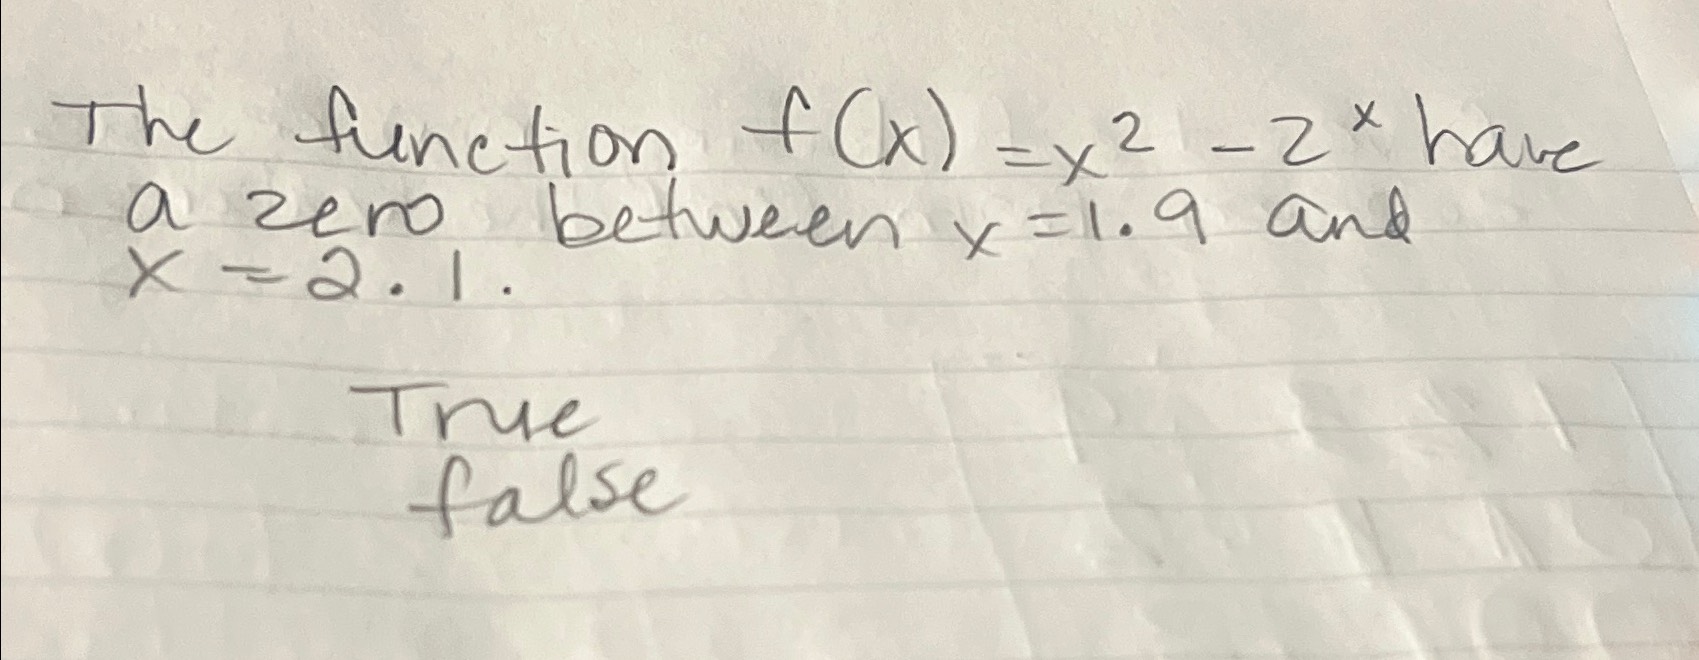 The function f(x) = x² - 2ˣ have
a zero between x = 1.9 and
x = 2.1.
True
false